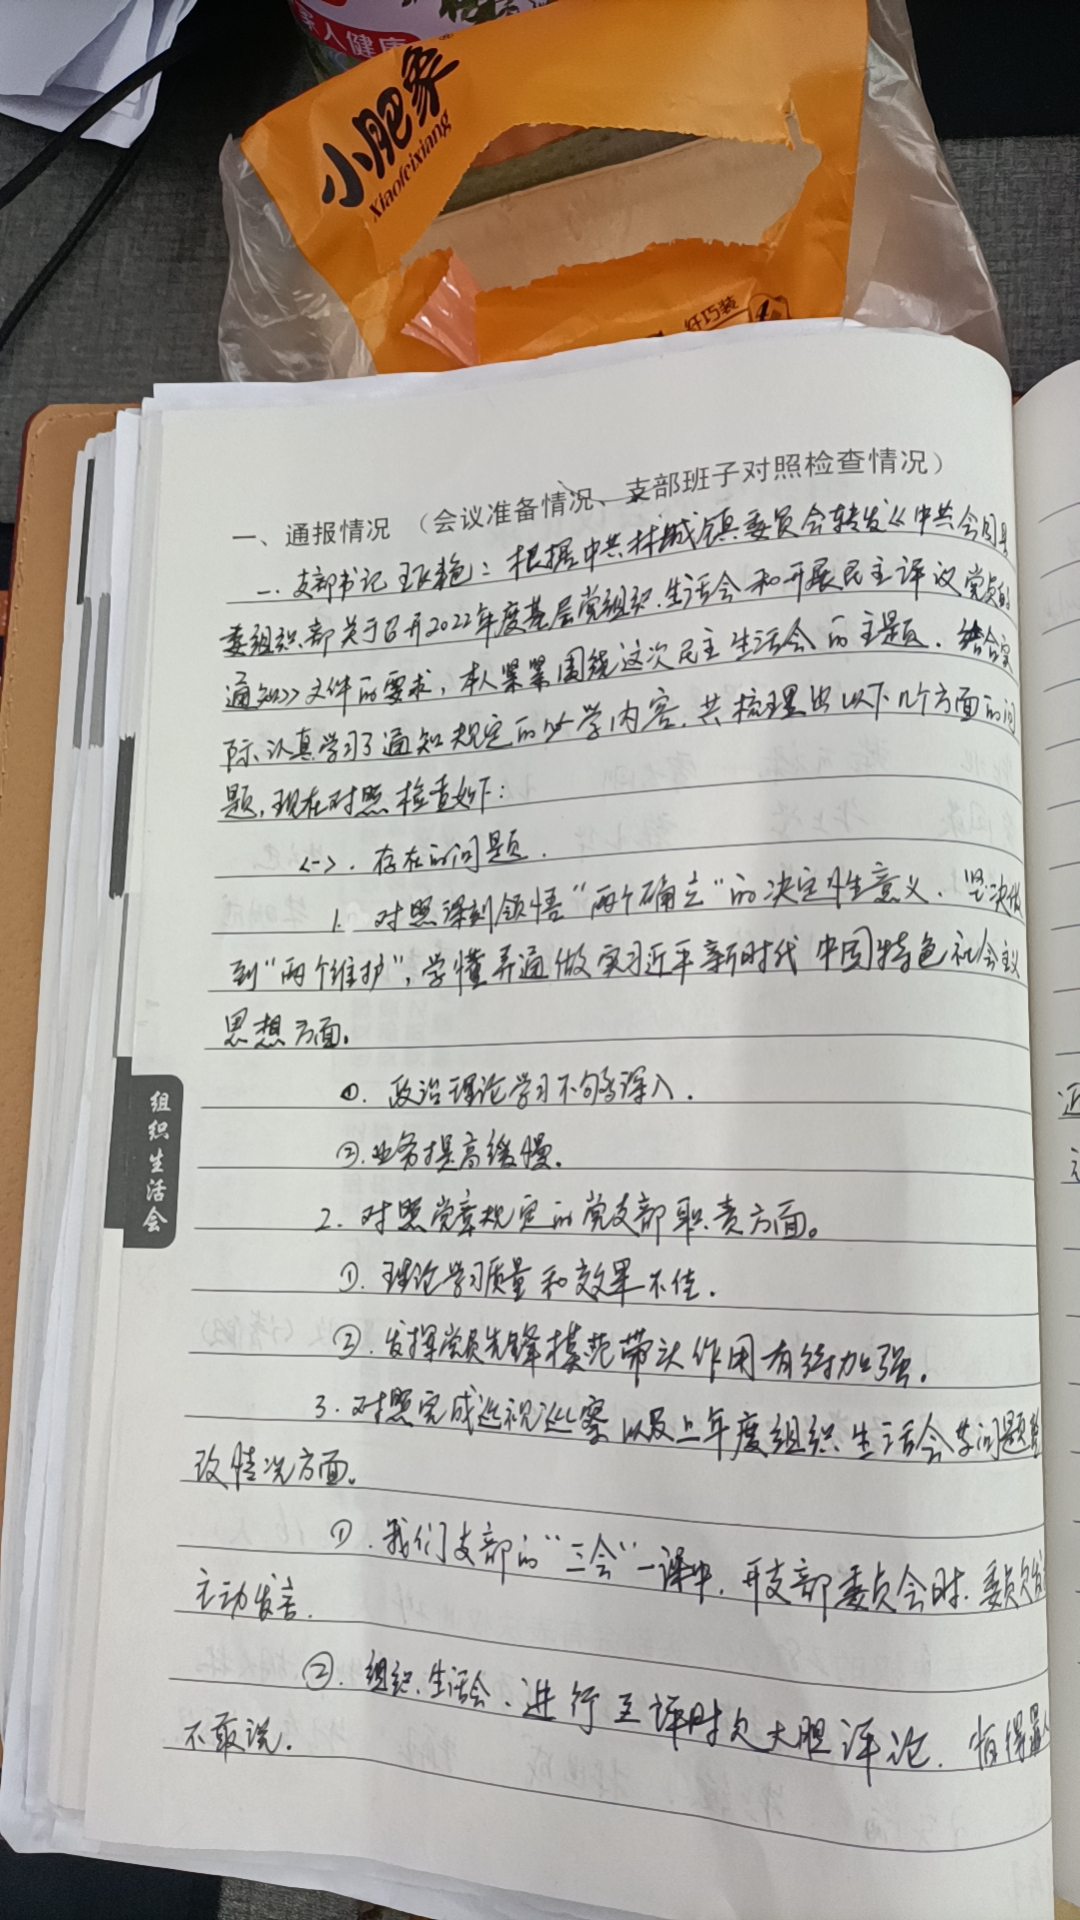 家人健康
小肥象
Xiaofeixiang
纤巧装
一、通报情况 （会议准备情况、支部班子对照检查情况）
一、支部书记 艳：根据中共林城镇委员会转发《中共会同县
委组织部关于召开2022年度基层党组织生活会和开展民主评议党员的
通知》文件的要求，本人紧紧围绕这次民主生活会的主题．结合实
际，认真学习了通知规定的必学内容，共梳理出以下几个方面的问
题，现在对照检查如下：
<一>．存在的问题．
1. 对照深刻领悟“两个确立”的决定性意义．坚决做
到“两个维护”，学懂弄通做实习近平新时代中国特色社会主义
思想方面。
①．政治理论学习不够深入．
②.业务提高缓慢。
2. 对照党章规定的党支部职责方面。
①．理论学习质量和效果不佳．
②．发挥党员先锋模范带头作用有待加强．
3. 对照完成巡视巡察以及上年度组织生活会等问题整
改情况方面。
①．我们支部的“三会”一课中．开支部委员会时．委员欠
主动发言．
②．组织生活会．进行互评时欠大胆评论．怕得罪人
不敢说．
组织生活会